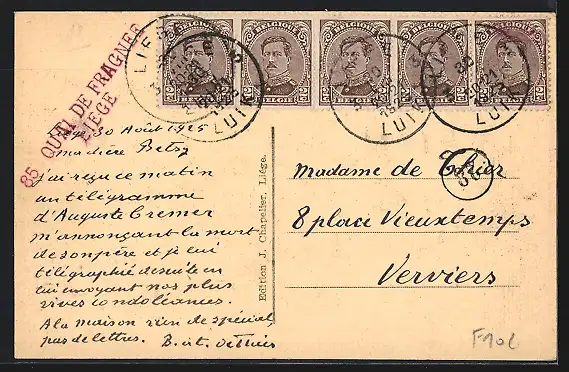 BELGIQUE BELGIQUE BELGIQUE BELGIQUE BELGIQUE
2 BELGIE 2 2 BELGIE 2 2 BELGIE 2 2 BELGIE 2 2 BELGIE 2
LUIK LUIK LUIK
85 QUAI DE FRAGNEE
LIEGE
30 Août 1925
Betsy
j'ai reçu ce matin
un télégramme
d'Auguste Cremer
m'annonçant la mort
de son père et je lui
télégraphie de suite en
lui envoyant nos plus
vives condoléances.
A la maison rien de spécial,
pas de lettres. B. et.
Edition J. Chapelier, Liége.
Madame de
8 place Vieuxtemps
Verviers
F102